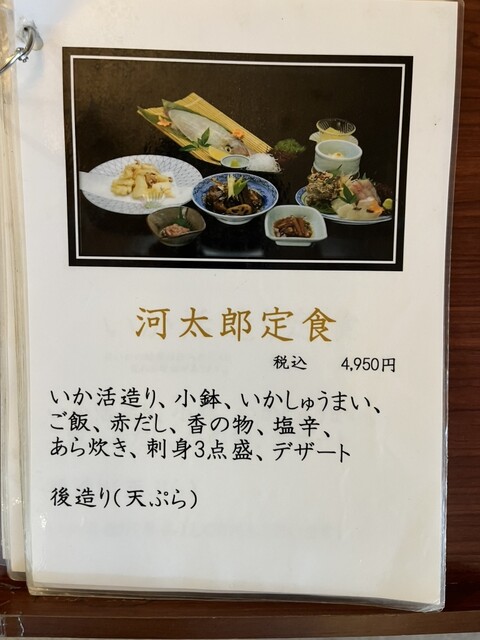 河太郎定食
税込 4,950円
いか活造り、小鉢、いかしゅうまい、
ご飯、赤だし、香の物、塩辛、
あら炊き、刺身3点盛、デザート
後造り(天ぷら)